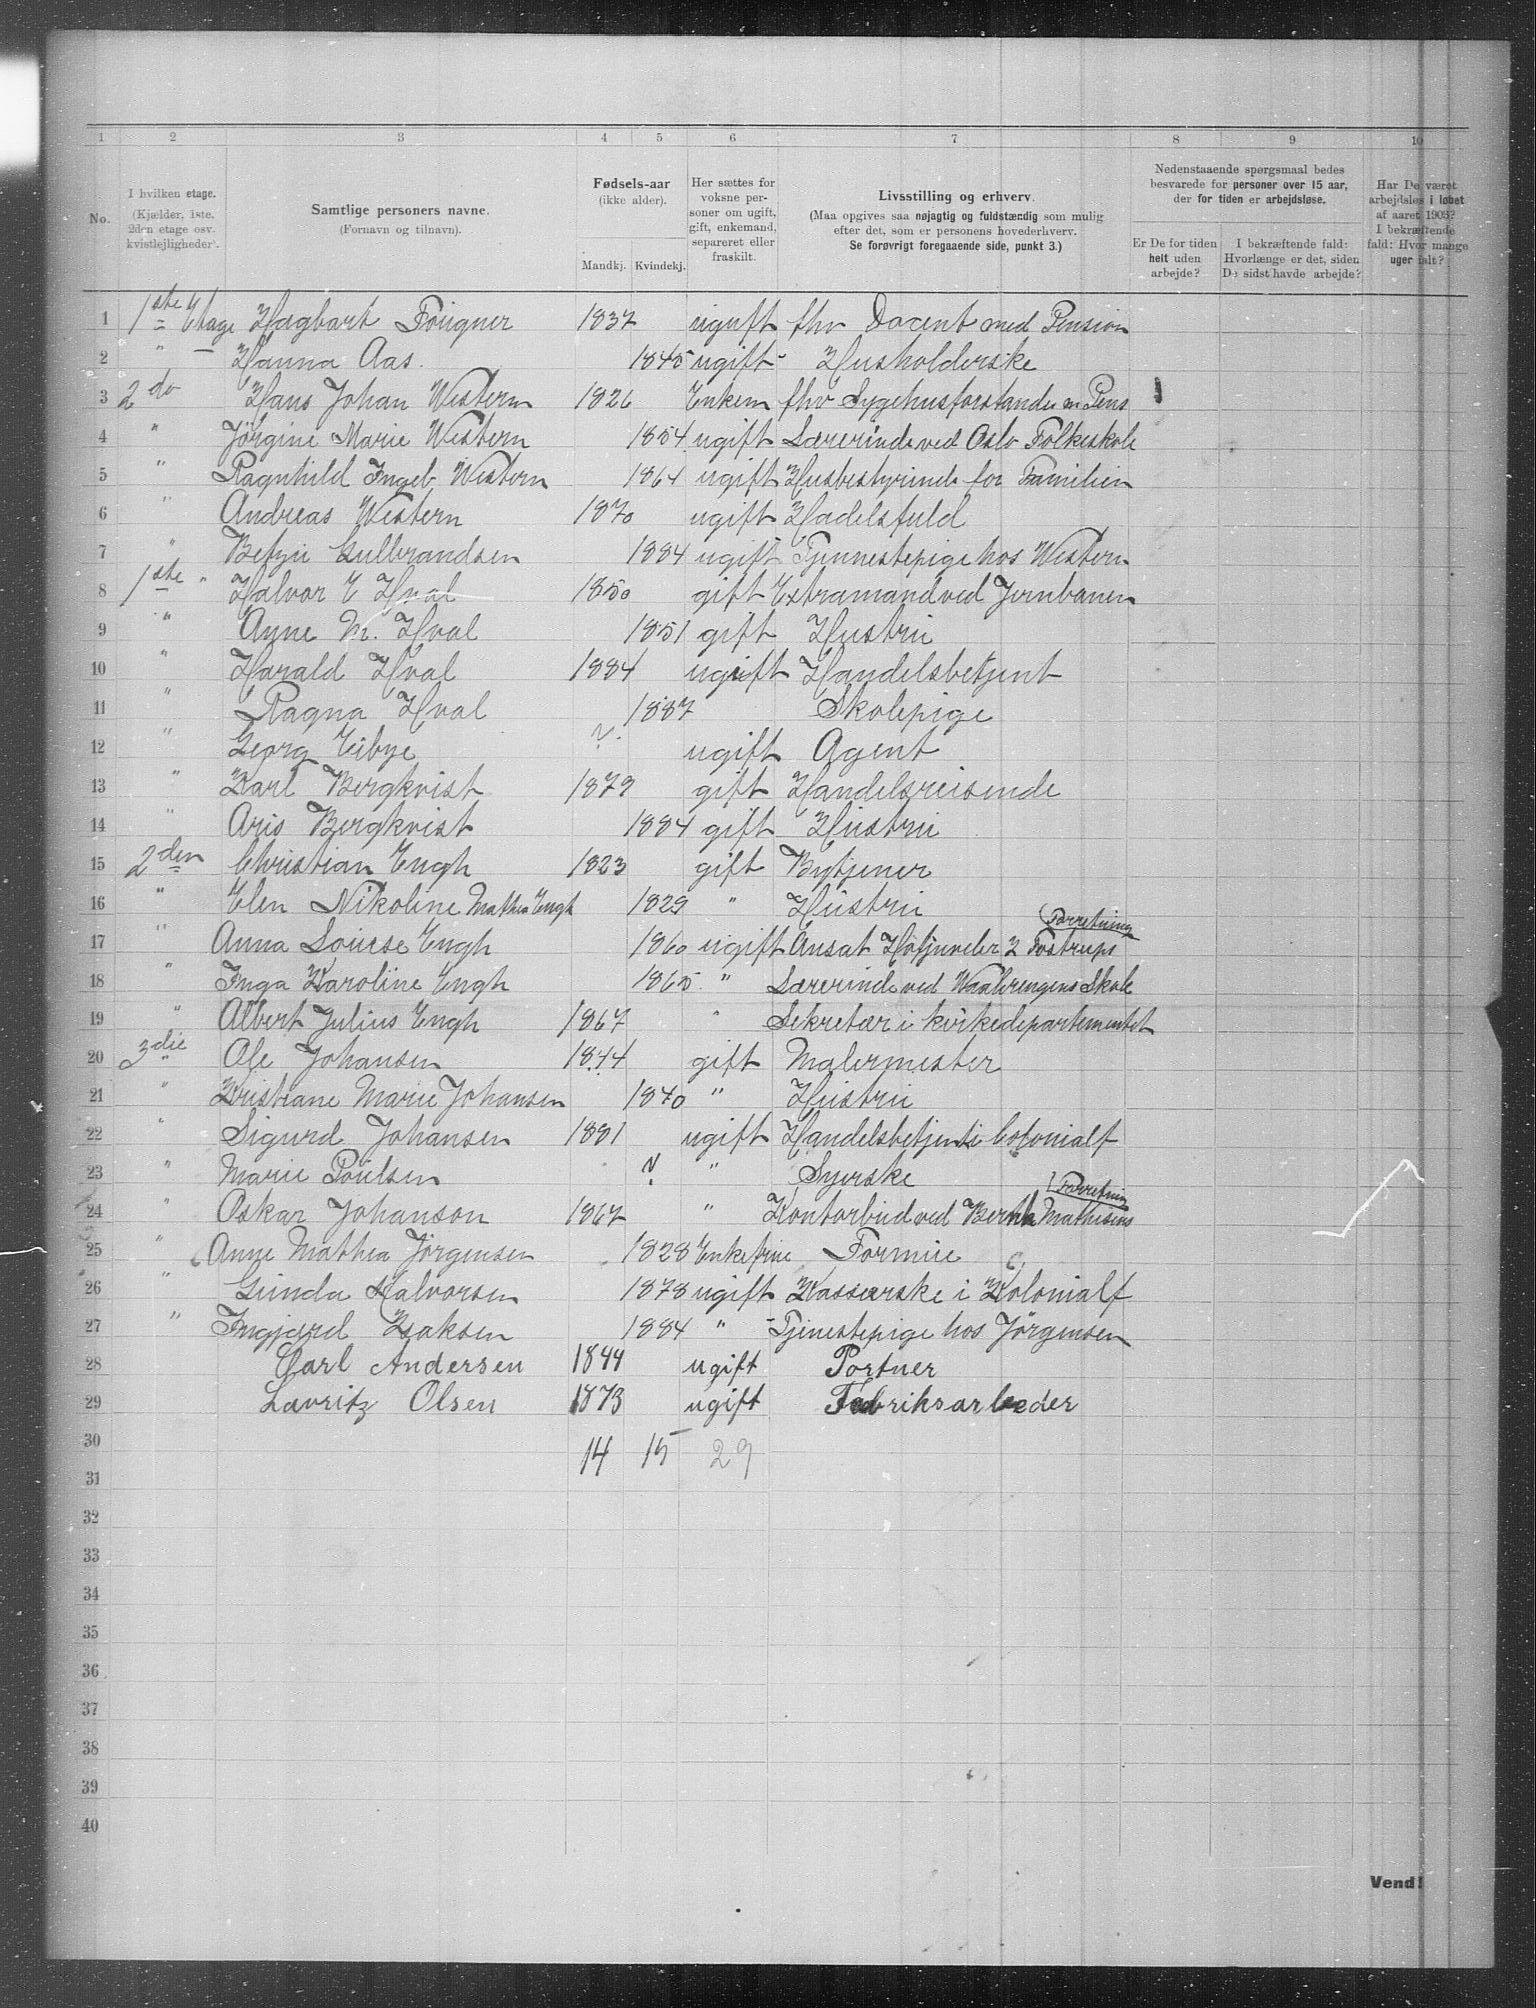 1 2 3 4 5 6 7 8 9 10
No. I hvilken etage. (Kjælder, 1ste, 2den etage osv. kvistlejligheder). Samtlige personers navne. (Fornavn og tilnavn). Fødsels-aar (ikke alder). Mandkj. Kvindekj. Her sættes for voksne personer om ugift, gift, enkemand, separeret eller fraskilt. Livsstilling og erhverv. (Maa opgives saa nøjagtig og fuldstændig som mulig efter det, som er personens hovederhverv. Se forøvrigt foregaaende side, punkt 3.) Nedenstaaende spørgsmaal bedes besvarede for personer over 15 aar, der for tiden er arbejdsløse. Er De for tiden helt uden arbejde? I bekræftende fald: Hvorlænge er det, siden De sidst havde arbejde? Har De været arbejdsløs i løbet af aaret 1903? I bekræftende fald: Hvor mange uger ialt?
1 1ste Etage Hagbart Fougner 1837 ugift fhv Docent med Pension
2 " Hanna Aas. 1845 ugift Husholderske
3 2do Hans Johan Western 1826 Enkem fhv Sygehusforstander m Pens
4 " Jörgine Marie Western 1854 ugift Lærerinde ved Oslo Folkeskole
5 " Ragnhild Ingeb Western 1864 ugift Husbestyrinde for Familien
6 " Andreas Western 1870 ugift Hadelsfuld
7 " Gulbrandsen 1884 ugift Tjennestepige hos Western
8 1ste " Halvor E Hval 1850 gift Extramand ved Jernbanen
9 " Anne M. Hval 1851 gift Hustru
10 " Harald Hval 1884 ugift Handelsbetjent
11 " Ragna Hval 1887 Skolepige
12 " Georg Eibye ? ugift Agent
13 " Karl Bergkvist 1879 gift Handelsreisende
14 " Aris Bergkvist 1884 gift Hustru
15 2den Christian Engh 1823 gift Bytjener
16 " Elen Nikoline Mathea Engh 1829 " Hustru
17 " Anna Louise Engh 1860 ugift Ansat Hofjuveler Tostrups Forretning
18 " Inga Karoline Engh 1865 " Lærerinde ved Waalrengens Skole
19 " Albert Julius Engh 1867 " Sekretær i kirkedepartementet
20 3die " Ole Johansen 1844 gift Malermester
21 " Kristiane Marie Johansen 1840 " Hustru
22 " Sigurd Johansen 1881 ugift Handelsbetjent i Colonialf
23 " Marie Poulsen ? " Syerske
24 " Oskar Johanson 1867 " Kontorbud ved Mathisens Forretning
25 " Anne Mathea Jörgensen 1828 Enkefrue Formue
26 " Gunda Halvorsen 1878 ugift Kasserske i Kolonialf
27 " Ingjærd Isaksen 1884 " Tjenestepige hos Jörgensen
28 Carl Andersen 1844 ugift Portner
29 Lauritz Olsen 1873 ugift Fabriksarbeder
30 14 15 29
31
32
33
34
35
36
37
38
39
40
Vend!